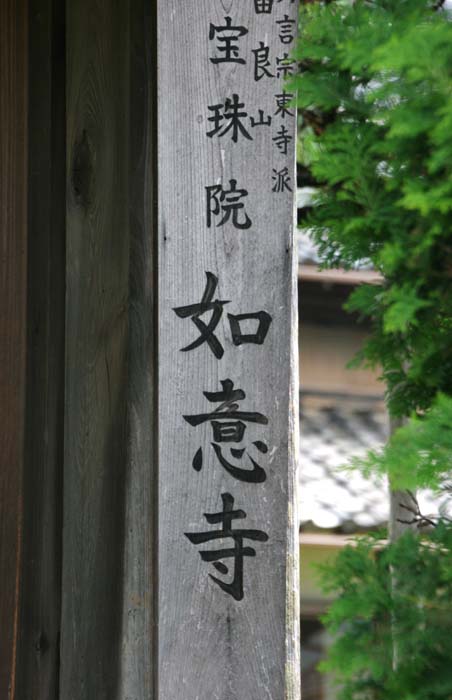 言宗東寺派
良山
宝珠院
如意寺